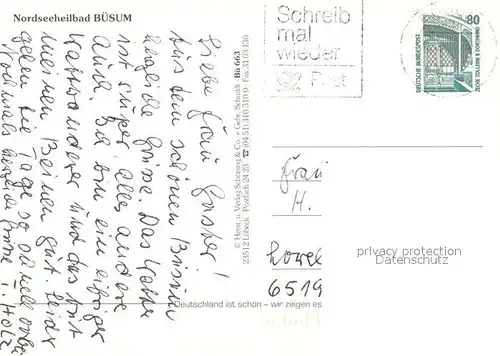 Nordseeheilbad BÜSUM
Liebe Frau
Aus dem schönen Büsum
herzliche Grüße. Das Wetter
ist super, alles andere
auch. Bin ein eifriger
Wattwanderer und das tut
meinen Beinen gut. Leider
gehen die Tage so schnell vorbei
Nochmals herzliche Grüße
I. Holz
© Herst. u. Verlag Schöning & Co. + Gebr. Schmidt
23512 Lübeck · Postfach 24 23 ☎ (04 51) 310 310 0 · Fax 31 03 130
Bü 663
Deutschland ist schön – wir zeigen es
Schreib
mal
wieder
Post
80
DEUTSCHE BUNDESPOST
ZECHE ZOLLERN II DORTMUND
Frau
H.
6519
privacy protection
Datenschutz